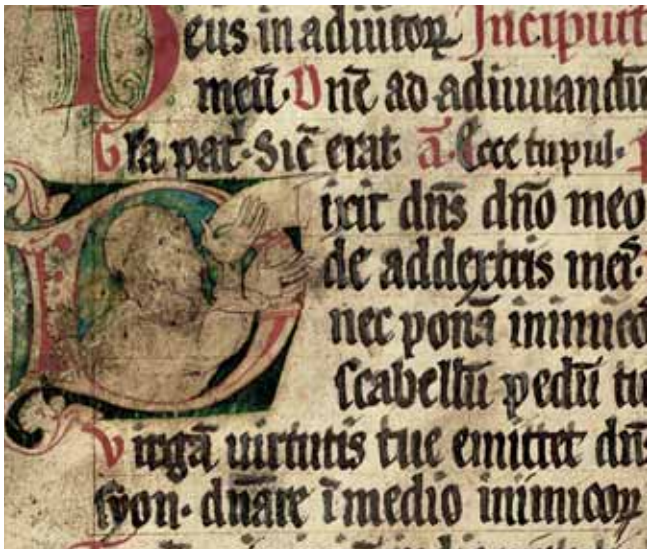 Deus in adiutoꝝ Incipiūt
meū· Dnē ad adiuuandū
Gl̄a pat̄· Sic̄ erat· a᷑· Ecce tu pul·
Dixit dn̄s dn̄o meo
de addextris mei᷑·
nec ponā inimico
scabellū pedū tu
Virgā uirtutis tue emittet dn̄s
syon· dn̄are ī medio inimicoꝝ